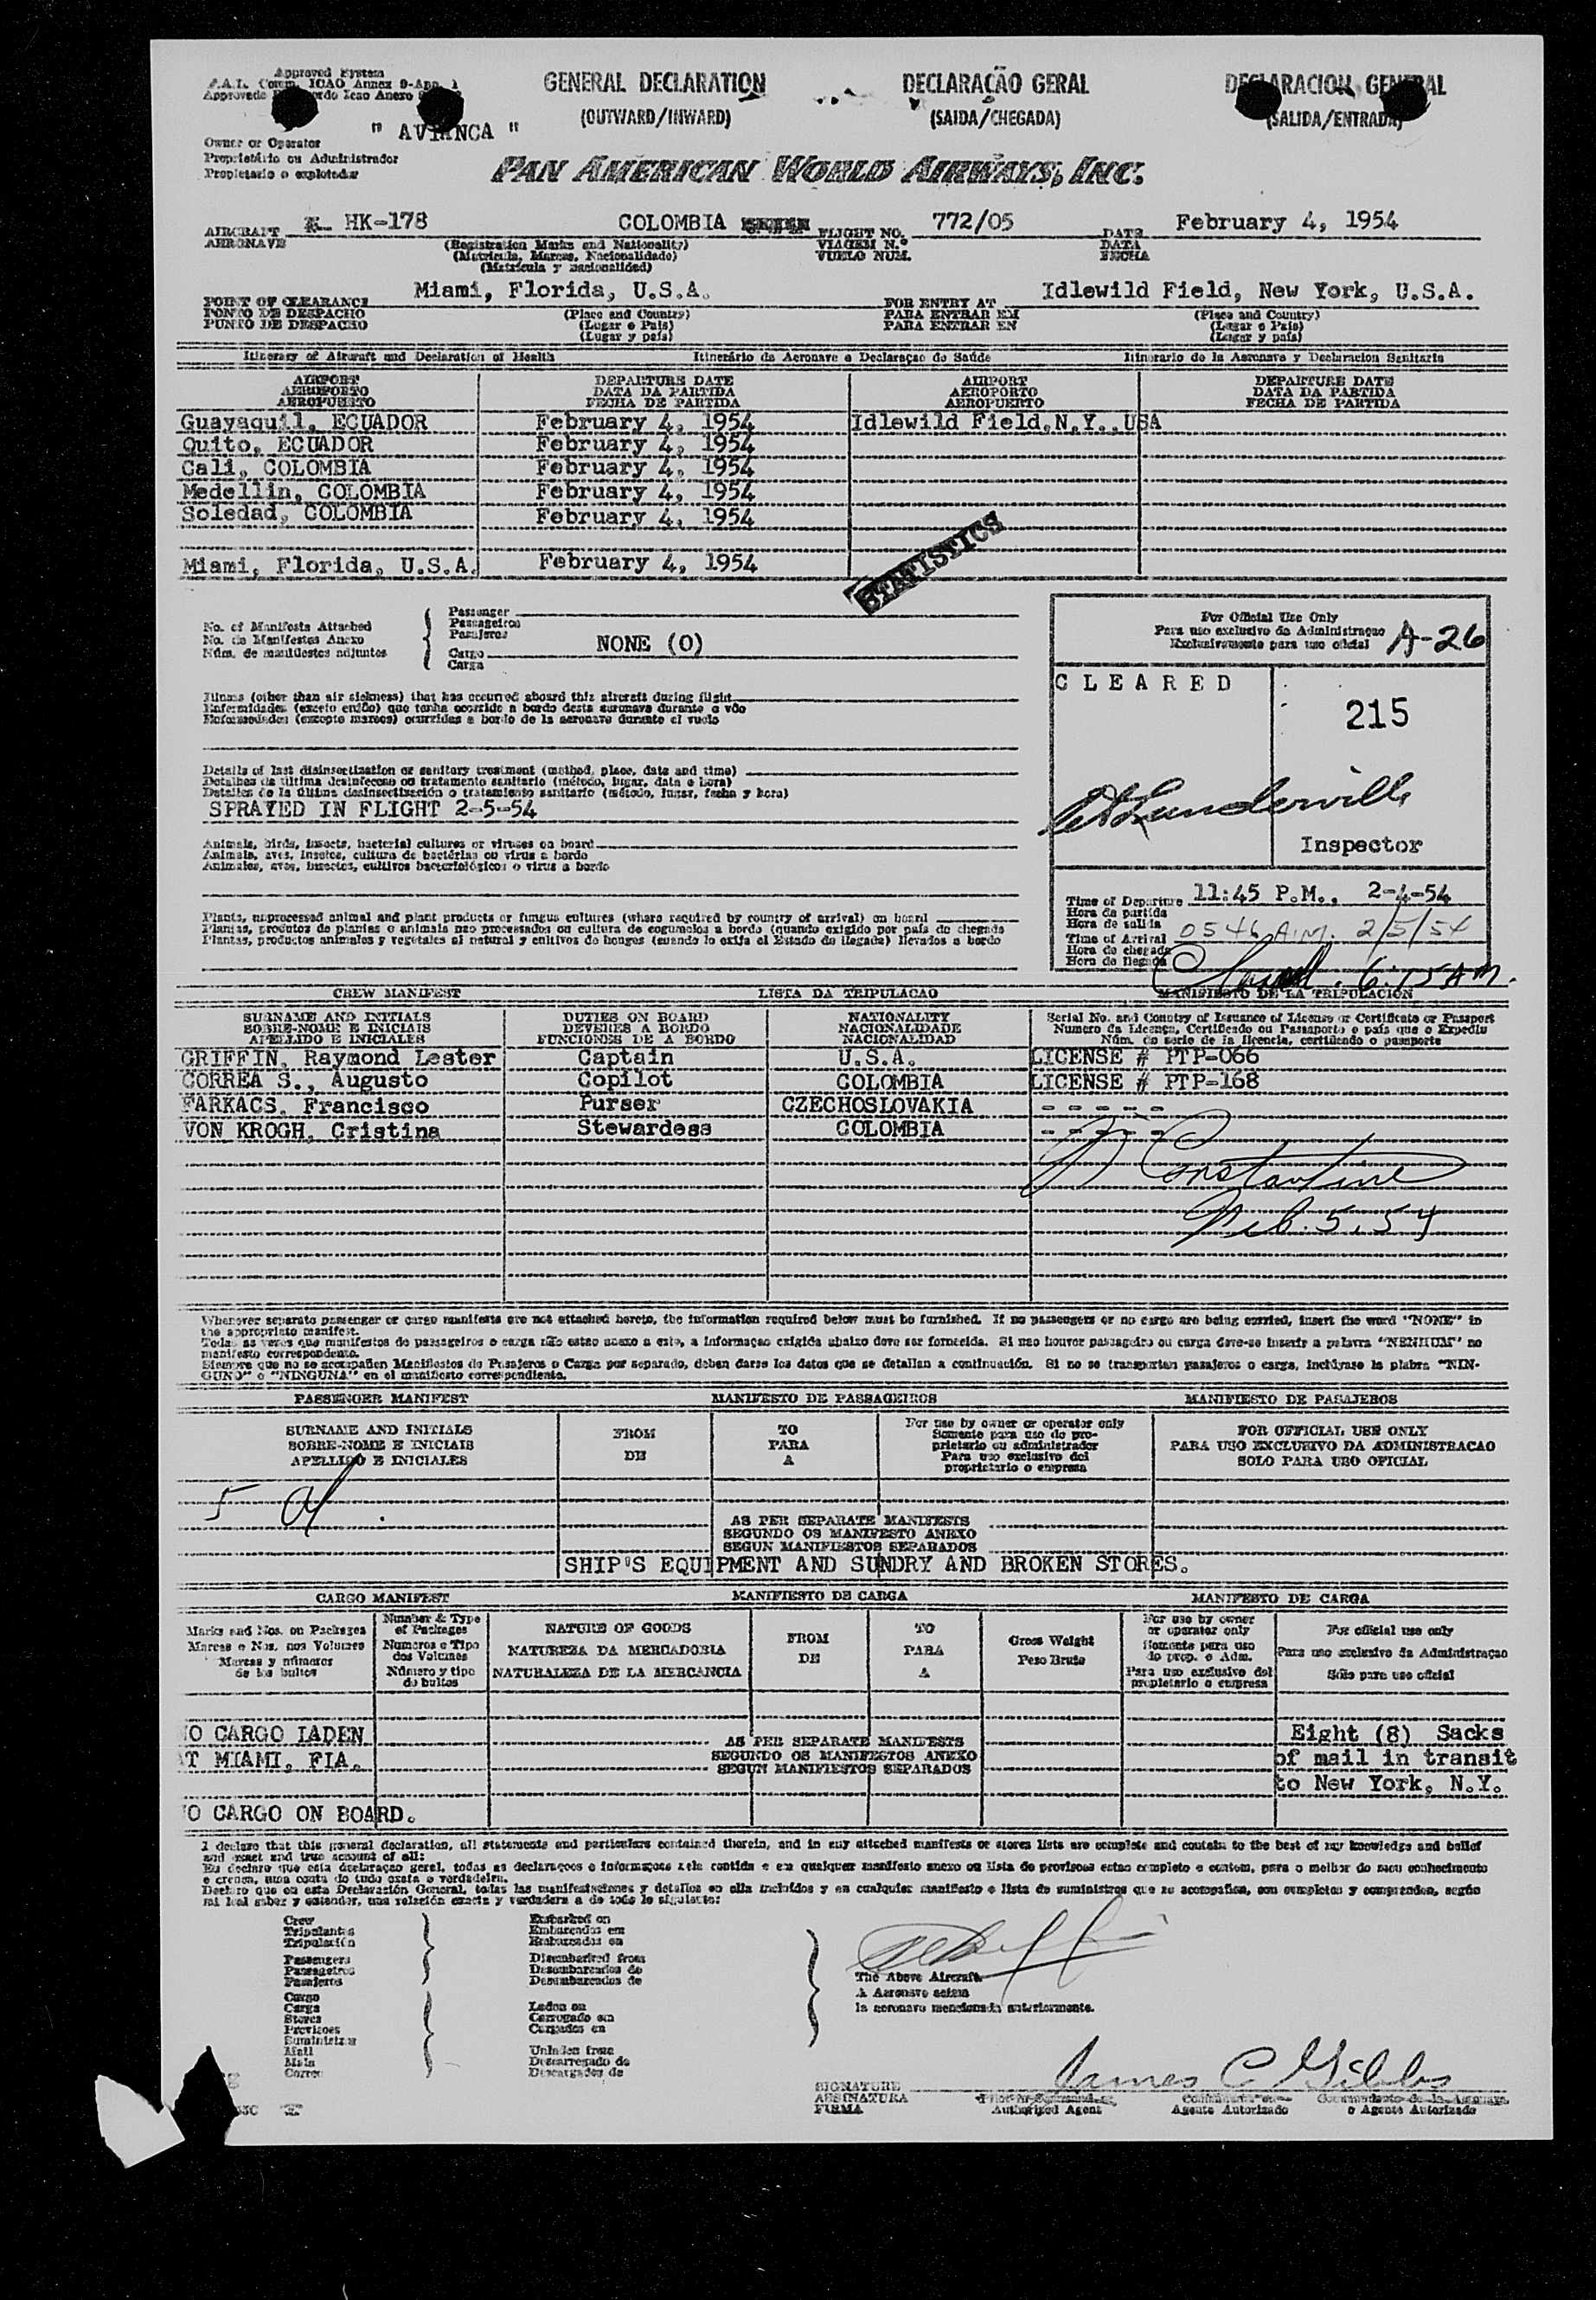 Approved System
GENERAL DECLARATION
DECLARAÇÃO GERAL
(OUTWARD/INWARD)
(SAIDA/CHEGADA)
(SALIDA/ENTRADA)
" AVIANCA "
Owner or Operator
Proprietário ou Administrador
Propietario o explotador
PAN AMERICAN WORLD AIRWAYS, INC.
AIRCRAFT HK-178 COLOMBIA FLIGHT NO. 772/05 DATE February 4, 1954
AERONAVE (Registration Marks and Nationality) VIAGEM N.º DATA
(Matricula, Marcas, Nacionalidade) VUELO NUM. FECHA
(Matrícula y nacionalidad)
POINT OF CLEARANCE Miami, Florida, U.S.A. FOR ENTRY AT Idlewild Field, New York, U.S.A.
PONTO DE DESPACHO (Place and Country) PARA ENTRAR EM (Place and Country)
PUNTO DE DESPACHO (Lugar e Pais) PARA ENTRAR EN (Lugar e Pais)
(Lugar y país) (Lugar y país)
Itinerary of Aircraft and Declaration of Health Itinerário da Aeronave e Declaraçao de Saúde Itinerario de la Aeronave y Declaracion Sanitaria
AIRPORT DEPARTURE DATE AIRPORT DEPARTURE DATE
AEROPORTO DATA DA PARTIDA AEROPORTO DATA DA PARTIDA
AEROPUERTO FECHA DE PARTIDA AEROPUERTO FECHA DE PARTIDA
Guayaquil, ECUADOR February 4, 1954 Idlewild Field,N.Y.,USA
Quito, ECUADOR February 4, 1954
Cali, COLOMBIA February 4, 1954
Medellin, COLOMBIA February 4, 1954
Soledad, COLOMBIA February 4, 1954
Miami, Florida, U.S.A. February 4, 1954
STATISTICS
No. of Manifests Attached
No. de Manifestos Anexo
Núm. de manifiestos adjuntos
Passenger
Passageiros
Pasajeros
Cargo NONE (0)
Carga
For Official Use Only
Para uso exclusivo da Administraçao
Exclusivamente para uso oficial
A-26
CLEARED
215
Inspector
Illness (other than air sickness) that has occurred aboard this aircraft during flight
Enfermidades (exceto enjôo) que tenha ocorrido a bordo desta aeronave durante o vôo
Enfermedades (excepto mareos) ocurridas a bordo de la aeronave durante el vuelo
Details of last disinsectization or sanitary treatment (method, place, date and time)
Detalhes da última desinfeccao ou tratamento sanitario (método, lugar, data e hora)
Detalles de la última desinsectización o tratamiento sanitario (método, lugar, fecha y hora)
SPRAYED IN FLIGHT 2-5-54
Animals, birds, insects, bacterial cultures or viruses on board
Animais, aves, insetos, cultura de bactérias ou virus a bordo
Animales, aves, insectos, cultivos bacteriológicos o virus a bordo
Plants, unprocessed animal and plant products or fungus cultures (where required by country of arrival) on board
Plantas, produtos de plantas e animais nao processados ou cultura de cogumelos a bordo (quando exigido por país de chegada
Plantas, productos animales y vegetales al natural y cultivos de hongos (cuando lo exija el Estado de llegada) llevados a bordo
Time of Departure 11:45 P.M., 2-4-54
Hora da partida
Hora de salida
Time of Arrival 0546 A.M. 2/5/54
Hora de chegada
Hora de llegada
6:15 AM.
CREW MANIFEST LISTA DA TRIPULACAO MANIFIESTO DE LA TRIPULACION
SURNAME AND INITIALS DUTIES ON BOARD NATIONALITY Serial No. and Country of Issuance of License or Certificate or Passport
SOBRE-NOME E INICIAIS DEVERES A BORDO NACIONALIDADE Numero da Licença, Certificado ou Passaporto e país que o Expediu
APELLIDO E INICIALES FUNCIONES DE A BORDO NACIONALIDAD Núm. de serie de la licencia, certificado o pasaporte
GRIFFIN, Raymond Lester Captain U.S.A. LICENSE # PTP-066
CORREA S., Augusto Copilot COLOMBIA LICENSE # PTP-168
FARKACS, Francisco Purser CZECHOSLOVAKIA - - - - -
VON KROGH, Cristina Stewardess COLOMBIA - - - - -
Constantine
Feb. 5. 54
Whenever separate passenger or cargo manifests are not attached hereto, the information required below must be furnished. If no passengers or no cargo are being carried, insert the word "NONE" in
the appropriate manifest.
Todas as vezes que manifestos de passageiros e carga não estao anexo a este, a informaçao exigida abaixo deve ser fornecida. Si nao houver passageiro ou carga deve-se inserir a palavra "NENHUM" no
manifesto correspondente.
Siempre que no se acompañen Manifiestos de Pasajeros o Carga por separado, deben darse los datos que se detallan a continuación. Si no se transportan pasajeros o carga, inclúyase la plabra "NIN-
GUNO" o "NINGUNA" en el manifiesto correspondiente.
PASSENGER MANIFEST MANIFESTO DE PASSAGEIROS MANIFIESTO DE PASAJEROS
SURNAME AND INITIALS FROM TO For use by owner or operator only FOR OFFICIAL USE ONLY
SOBRE-NOME E INICIAIS PARA Somente para uso do pro- PARA USO EXCLUSIVO DA ADMINISTRACAO
APELLIDO E INICIALES DE A prietario ou administrador SOLO PARA USO OFICIAL
Para uso exclusivo del
proprietario o empresa
5
AS PER SEPARATE MANIFESTS
SEGUNDO OS MANIFESTO ANEXO
SEGUN MANIFIESTOS SEPARADOS
SHIP'S EQUIPMENT AND SUNDRY AND BROKEN STORES.
CARGO MANIFEST MANIFIESTO DE CARGA MANIFESTO DE CARGA
Marks and Nos. on Packages
Marcas e Nos. nos Volumes
Marcas y números
de los bultos
Number & Type
of Packages
Numeros e Tipo
dos Volumes
Número y tipo
de bultos
NATURE OF GOODS
NATUREZA DA MERCADORIA
NATURALEZA DE LA MERCANCIA
FROM
DE
TO
PARA
A
Gross Weight
Peso Bruto
For use by owner
or operator only
Somente para uso
do prop. e Adm.
Para uso exclusivo del
propietario o empresa
For official use only
Para uso exclusivo da Administraçao
Sólo para uso oficial
O CARGO LADEN
T MIAMI, FLA.
O CARGO ON BOARD.
AS PER SEPARATE MANIFESTS
SEGUNDO OS MANIFESTOS ANEXO
SEGUN MANIFIESTOS SEPARADOS
Eight (8) Sacks
of mail in transit
to New York, N.Y.
I declare that this general declaration, all statements and particulars contained therein, and in any attached manifests or stores lists are complete and contain to the best of my knowledge and belief
and exact and true account of all:
Eu declaro que esta declaraçao geral, todas as declaraçoes e informaçoes nela contida e em qualquer manifesto anexo ou lista de provisoes estao completo e contem, para o melhor do meu conhecimento
e crença, uma conta do tudo exata e verdadeira.
Declaro que en esta Declaración General, todas las manifestaciones y detalles en ella incluídos y en cualquier manifiesto o lista de suministros que se acompañen, son completos y comprenden, según
mi leal saber y entender, una relación exacta y verdadera a de todo lo siguiente:
Crew
Tripulantes
Tripulación
Passengers
Passageiros
Pasajeros
Cargo
Carga
Stores
Provisoes
Suministros
Mail
Mala
Correo
Embarked on
Embarcados em
Embarcados en
Disembarked from
Desembarcados de
Desembarcados de
Laden on
Carregado em
Cargados en
Unladen from
Descarregado de
Descargados de
The Above Aircraft
A Aeronave acima
la aeronave mencionada anteriormente.
SIGNATURE James C Gibbs
ASSINATURA
FIRMA
Authorized Agent Agente Autorizado o Agente Autorizado